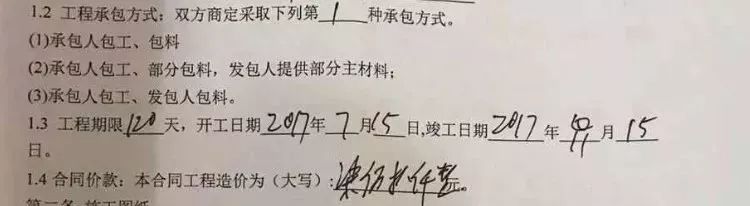 1.2 工程承包方式：双方商定采取下列第 1 种承包方式。
(1)承包人包工、包料
(2)承包人包工、部分包料，发包人提供部分主材料；
(3)承包人包工、发包人包料。
1.3 工程期限 120 天，开工日期 2017 年 7 月 15 日,竣工日期 2017 年 月 15
日。
1.4 合同价款：本合同工程造价为（大写）: 元。